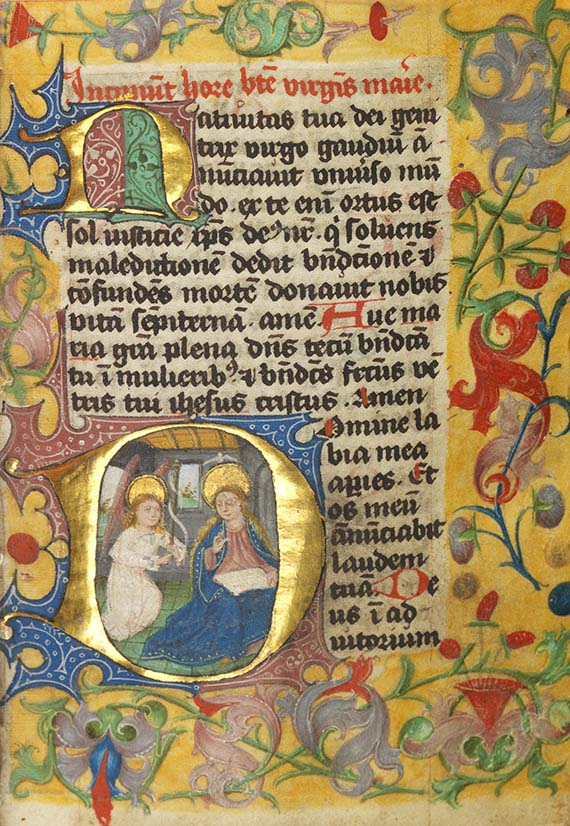 Incipiũt hore btẽ virgĩs marie.
Natiuitas tua dei geni
trix virgo gaudiũ ã
nũciauit vniũso mũ
do. ex te enĩ ortus est
sol iusticie xp̃s deꝰ nr̃. qͥ soluens
maledictionẽ dedit bñdctionẽ ⁊
cõfundẽs mortẽ donauit nobis
vitã sẽpiternã. amẽ. Aue ma
ria grã plena dñs tecũ bñdcta
tu ĩ mulieribꝰ ⁊ bñdctꝰ fructus vẽ
tris tui ihesus cristus. Amen
Domine la
bia mea
apies. Et
os meũ
ãnũciabit
laudem
tuã. De
us ĩ ad
iutorium